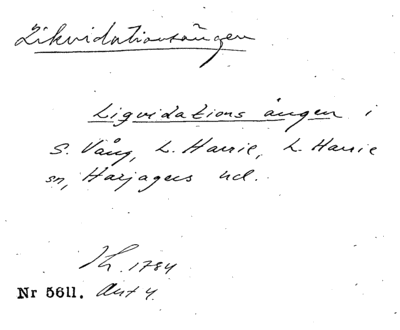 Likvidationsängen
Liqvidations ängen i
S. Vång, L. Harrie, L. Harrie
sn, Harjagers hd.
Ih. 1784
Nr 5611. Akt 4.